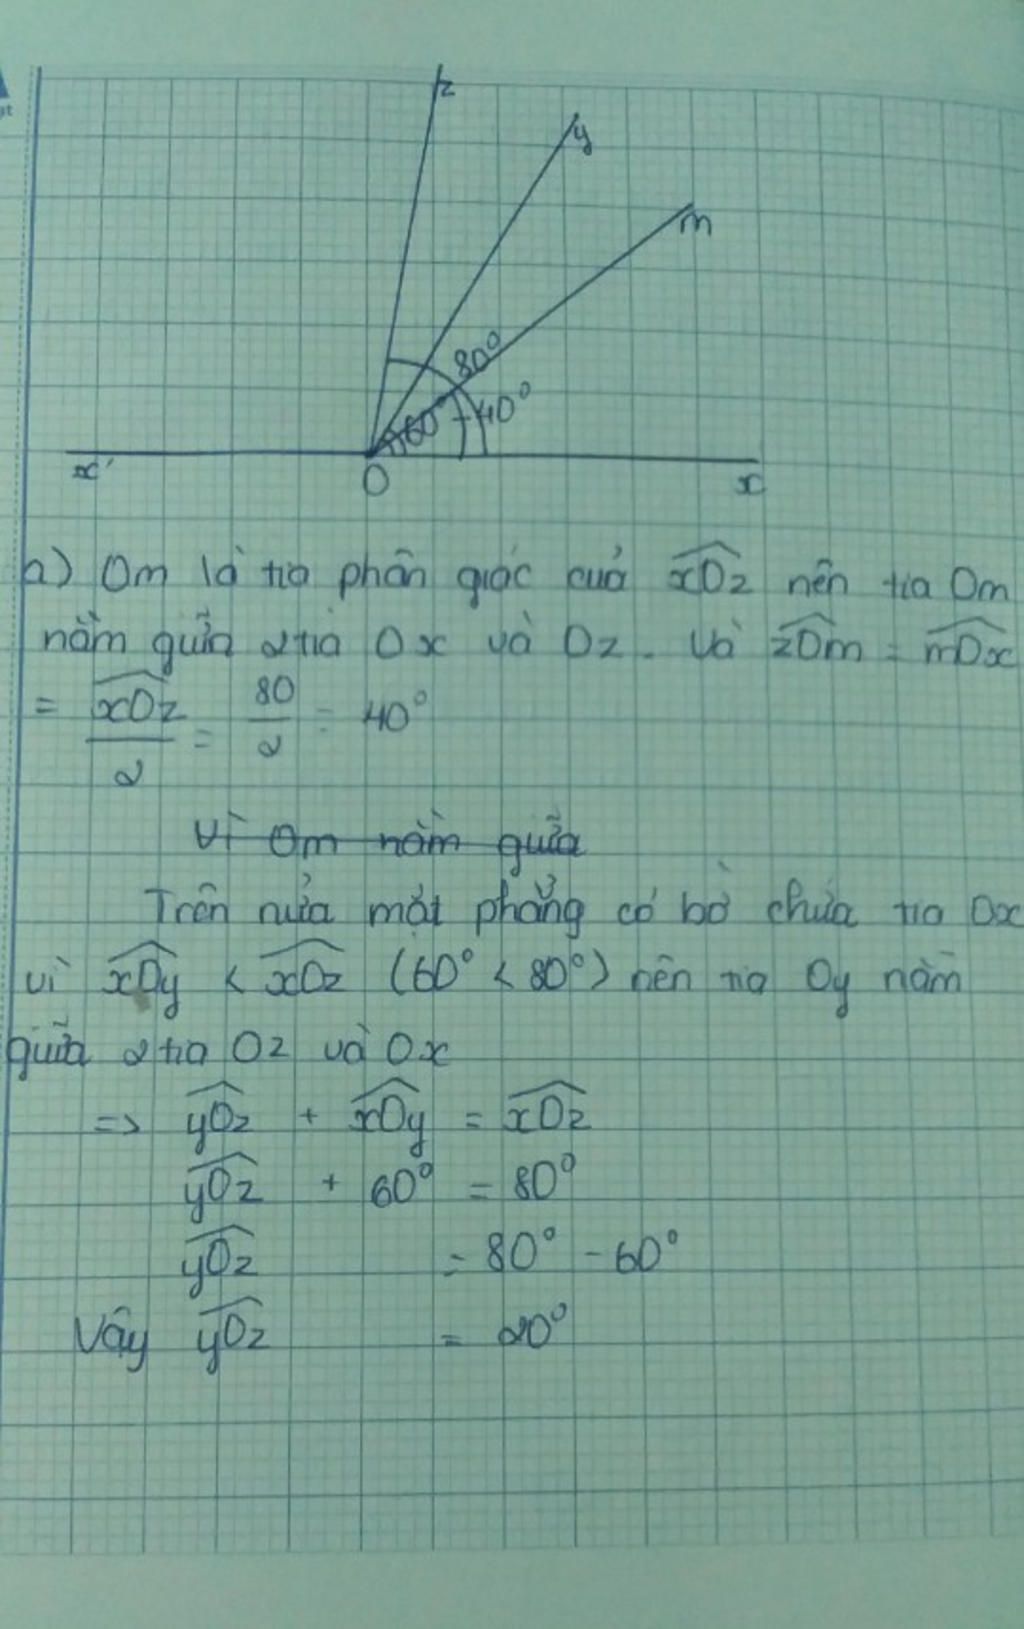 z
y
m
80°
60°
40°
x'
O
x
a) Om là tia phân giác của xOz nên tia Om
nằm giữa 2 tia Ox và Oz. Và zOm = mOx
= xOz/2 = 80/2 = 40°
Vì Om nằm giữa
Trên nửa mặt phẳng có bờ chứa tia Ox
vì xOy < xOz (60° < 80°) nên tia Oy nằm
giữa 2 tia Oz và Ox
=> yOz + xOy = xOz
yOz + 60° = 80°
yOz = 80° - 60°
Vậy yOz = 20°